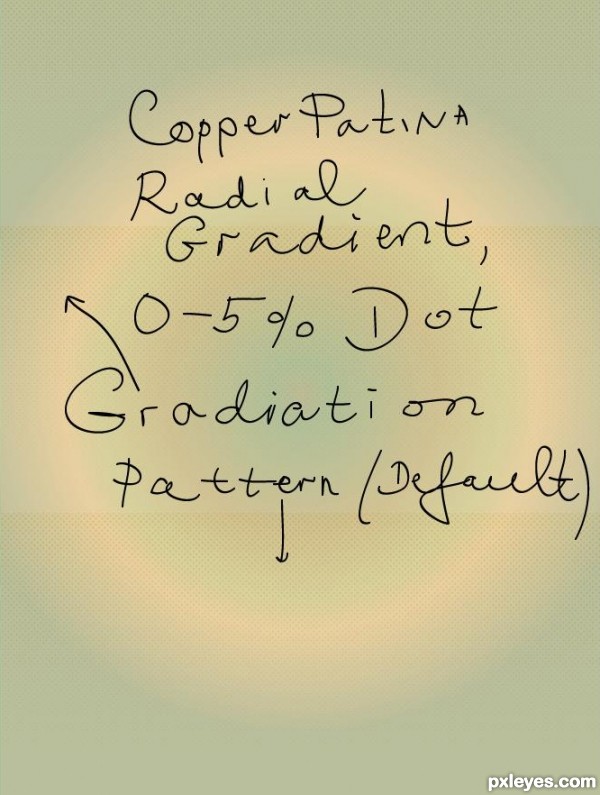 Copper Patina
Radial
Gradient,
0-5% Dot
Gradiation
Pattern (Default)
pxleyes.com